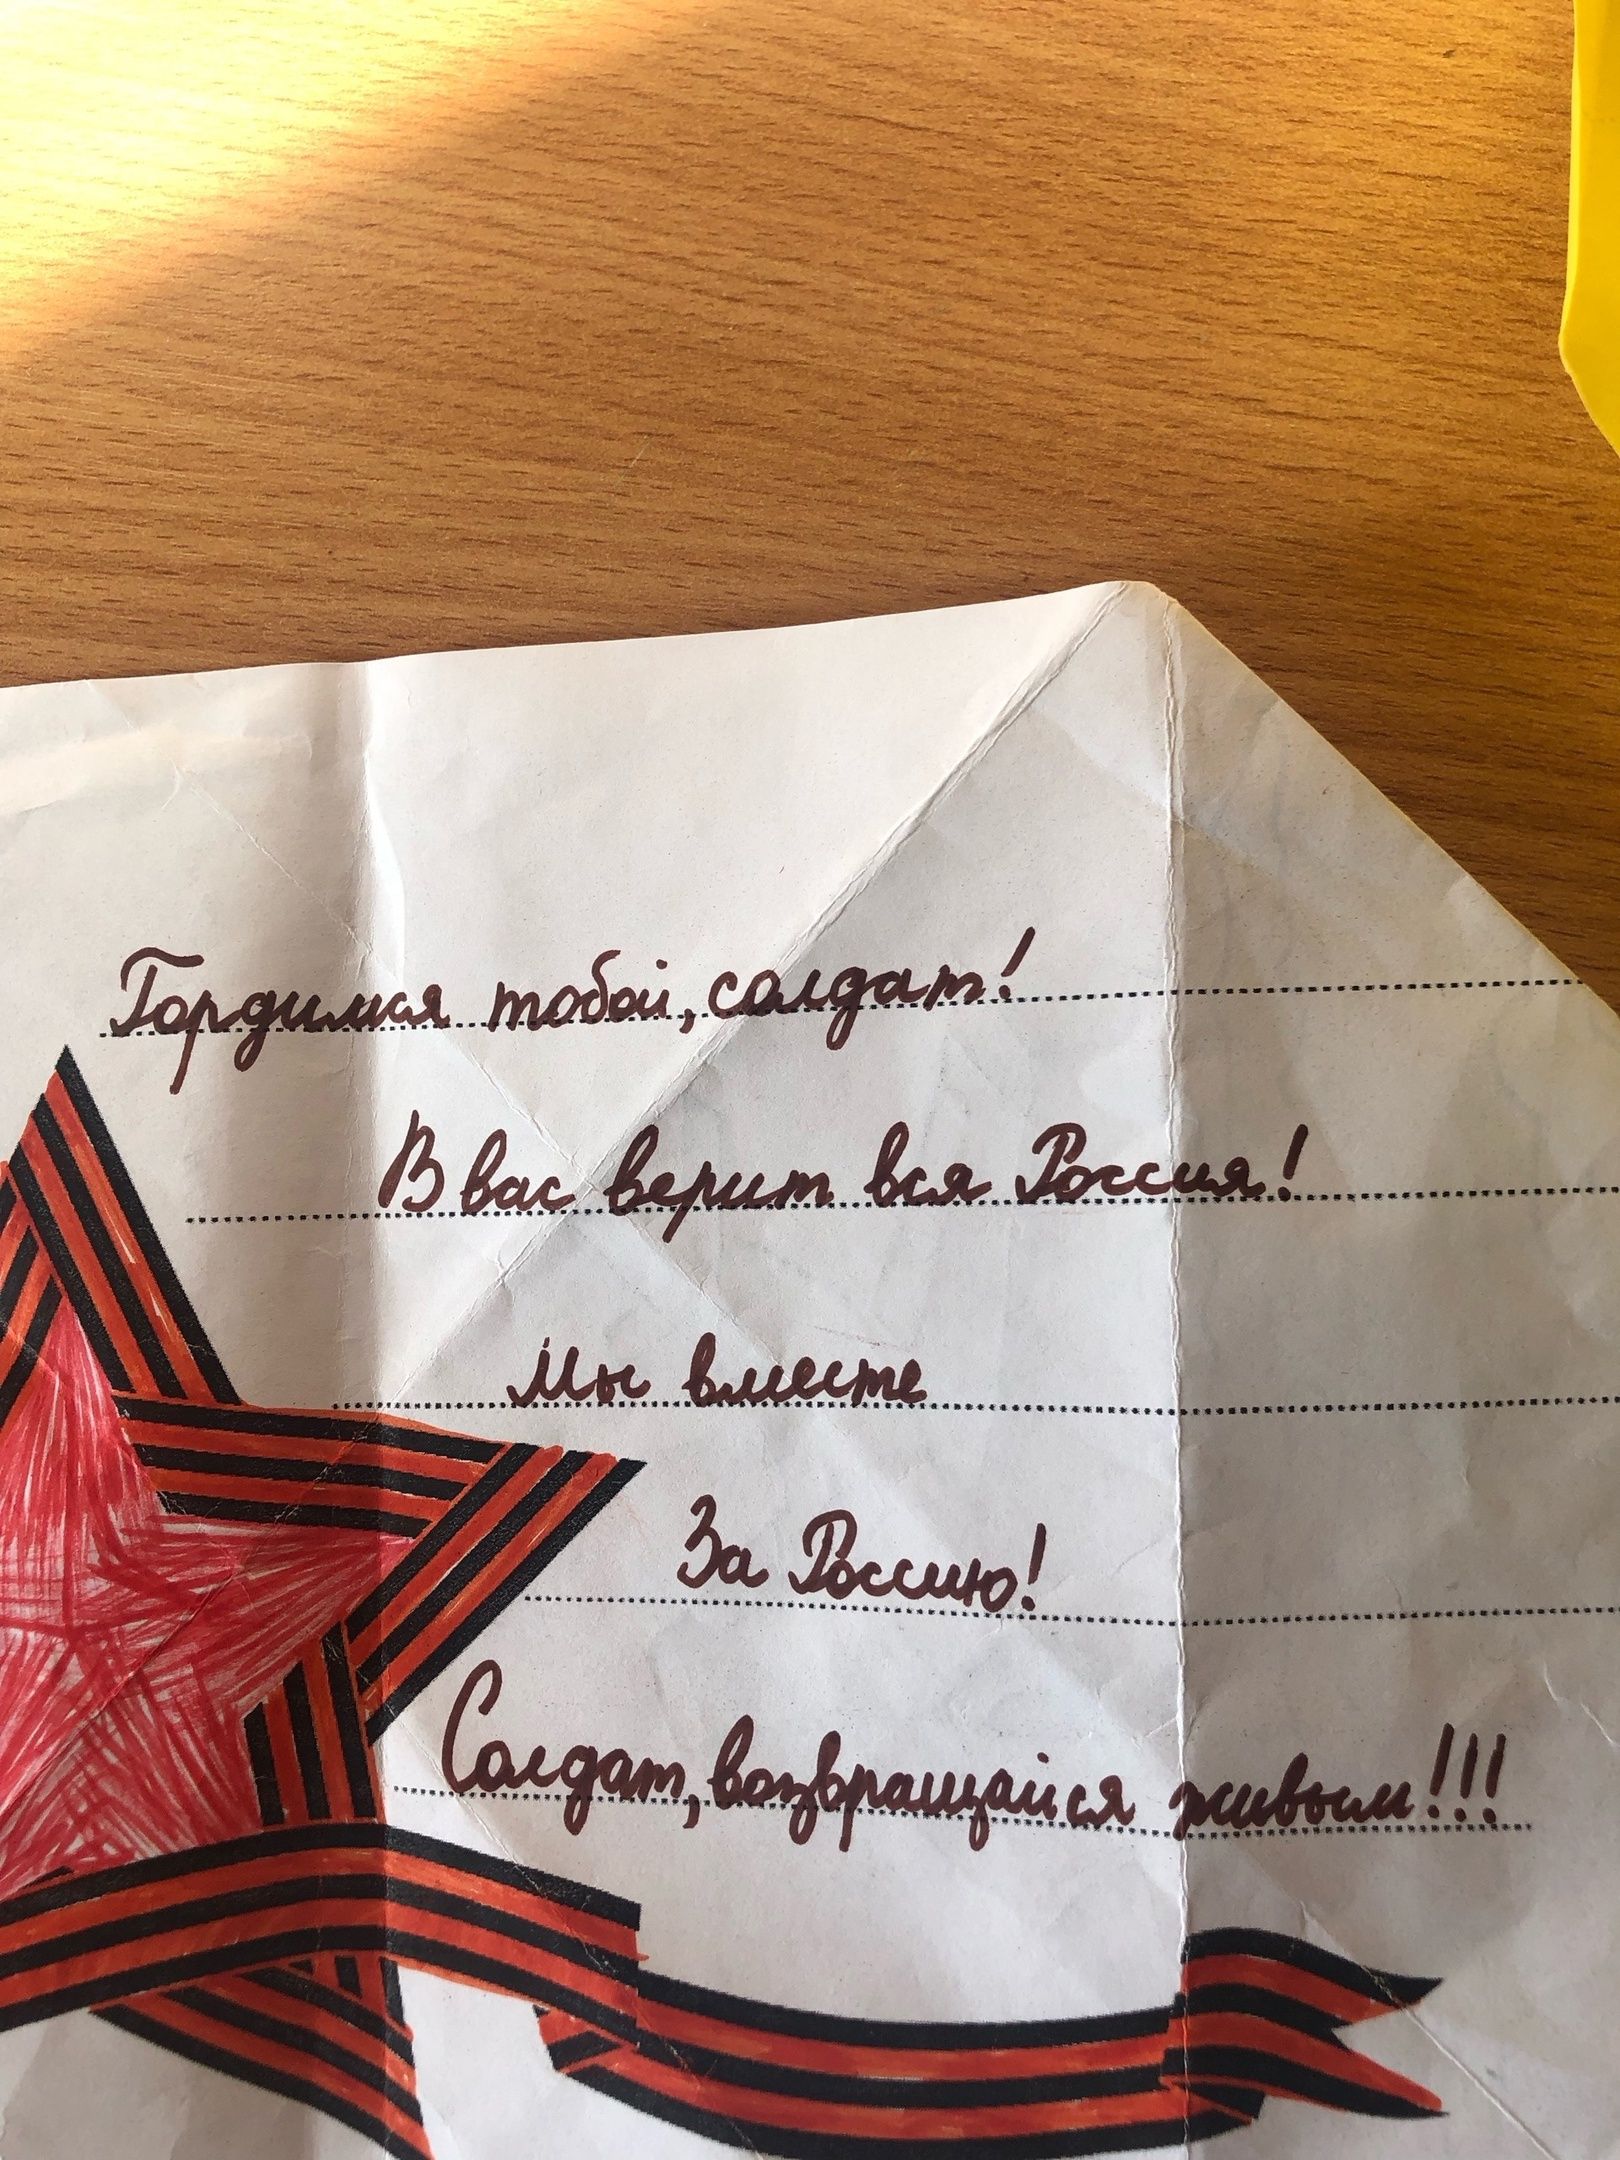 Гордимся тобой, солдат!
В вас верит вся Россия!
Мы вместе
За Россию!
Солдат, возвращайся живым!!!